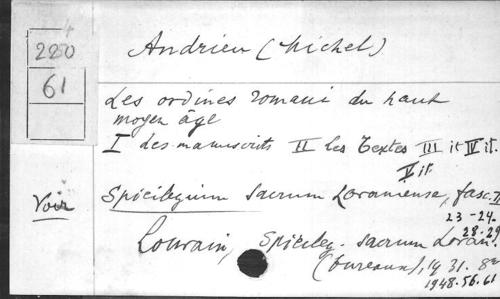 4
220
61
Andrieu (Michel)
Les ordines romani du haut
moyen âge
I des manuscrits II les Textes III it IV it.
V it.
Voir
Spicilegium sacrum Lovaniense, fasc. II
23-24.
28-29
Louvain, Spicileg. sacrum Lovan.
(bureaux), 1931. 8º
1948.56.61